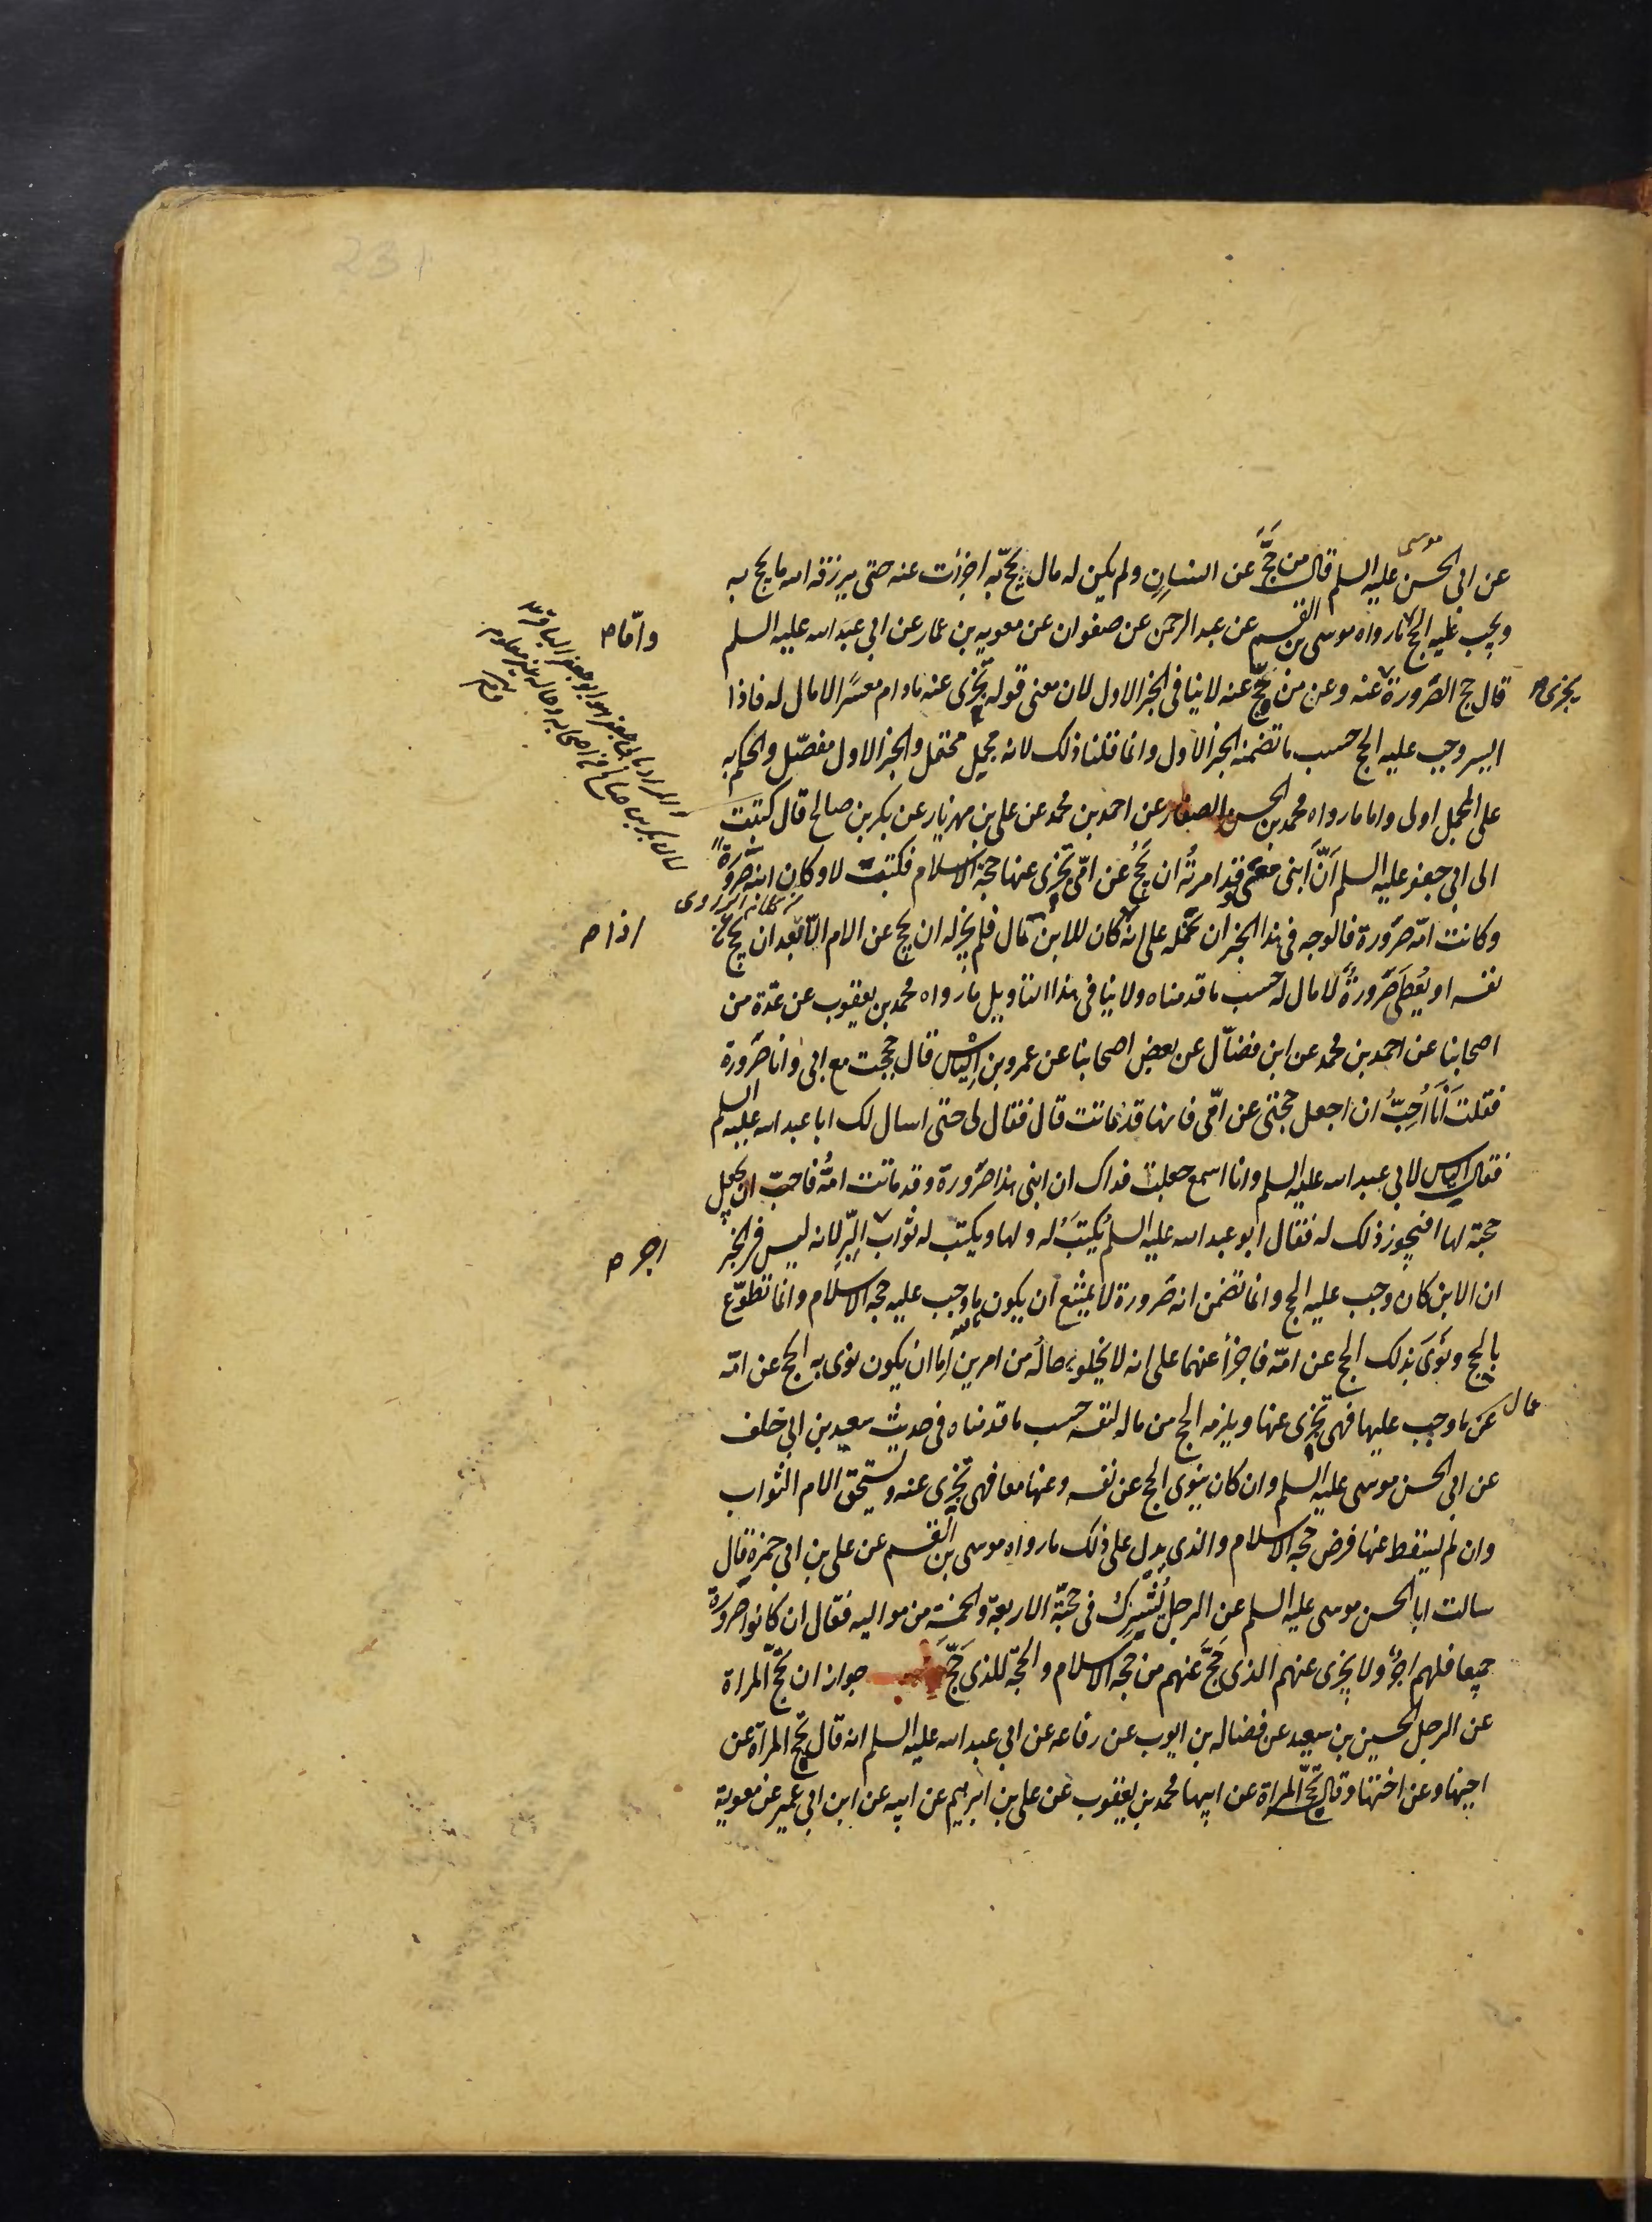 231
موسى
عن ابى الحسن عليه السلم قال من حَجَّ عن انسانٍ ولم يكن له مال يَحُجّ به اجزأت عنه حتى يرزقه الله ما يحج به
ويجب عليه الحج ما رواه موسى بن القسم عن عبد الرحمن عن صفوان عن معويه بن عمار عن ابى عبد الله عليه السلم
واما م
قال حج الصَّرورة عنه وعن من حَجَّ عنه لا ينافى الخبر الاول لان معنى قوله يجزى عنه ما دام معسرًا لا مال له فاذا
يجزى م
ايسر وجب عليه الحج حسب ما تضمنه الخبر الاول وانما قلنا ذلك لانه مجمل محتمل والخبر الاول مفصّل والحكم به
على المجمل اولى واما ما رواه محمد بن الحسن الصفار عن احمد بن محمد عن على بن مهزيار عن بكر بن صالح قال كتبت
الى ابى جعفر عليه السلم اَنَّ ابنى معى وقد امرته ان يَحُجَّ عن امّى يجزى عنها حجة الاسلام فكتب لا وكان ابنه صَرُورَةً
وكانت امّه صَرورة فالوجه فى هذا الخبر ان نحمله على انه كان للابن مال فلم يجز له ان يحج عن الام الّا بعد ان يحج عن
اذا م
نفسه او يُعطى صَرورةً لا مال له حسب ما قدمناه ولا ينافى هذا التاويل ما رواه محمد بن يعقوب عن عدّة من
اصحابنا عن احمد بن محمد عن ابن فضّال عن بعض اصحابنا عن عمرو بن اِلياس قال حججت مع ابى وانا صَرورة
فقلت اَنَا اُحِبُّ ان اجعل حجّتى عن امّى فانها قد ماتت قال فقال لى حتى اسال لك ابا عبد الله عليه السلم
فقال الياس لابى عبد الله عليه السلم وانا اسمع جعلت فداك ان ابنى هذا صَرورة وقد ماتت امّه فاحبّ ان يجعل
حجته لها افيجوز ذلك له فقال ابو عبد الله عليه السلم يُكتبُ له ولها ويكتب له ثواب البِّر لانه ليس فى الخبر
اجر م
ان الابن كان وجب عليه الحج وانما تضمن انه صَرورة لا يمتنع ان يكون ما وجب عليه حجة الاسلام وانما تطوّع
بالحج ونَوَى بذلك الحج عن امّه فاجزأ عنهما على انه لا يخلو حاله من امرين اِما ان يكون نوى به الحج عن امّه
عن ما وجب عليها فهى تجزى عنها ويلزمه الحج من ماله لنفسه حسب ما قدمناه فى حديث سعيد بن ابى خلف
عن ابى الحسن موسى عليه السلم وان كان ينوى الحج عن نفسه وعنها معا فهى تجزى عنه ويستحق الام الثواب
وان لم يسقط عنها فرض حجة الاسلام والذى يدل على ذلك ما رواه موسى بن القسم عن على بن ابى حمزة قال
سالت ابا الحسن موسى عليه السلم عن الرجل يُشرِكُ فى حجّة الاربعة والخمسة من مواليه فقال ان كانوا صَرورةً
جميعا فلهم اجر ولا يجزى عنهم الذى حَجَّ عنهم من حجة الاسلام والحجّة للذى حَجَّ جواز ان تحجّ المراة
عن الرجل الحسين بن سعيد عن فضاله بن ايوب عن رفاعه عن ابى عبد الله عليه السلم انه قال تحج المراة عن
اخيها وعن اختها وقال تحجّ المراة عن ابيها محمد بن يعقوب عن على بن ابرهيم عن ابيه عن ابن ابى عمير عن معوية